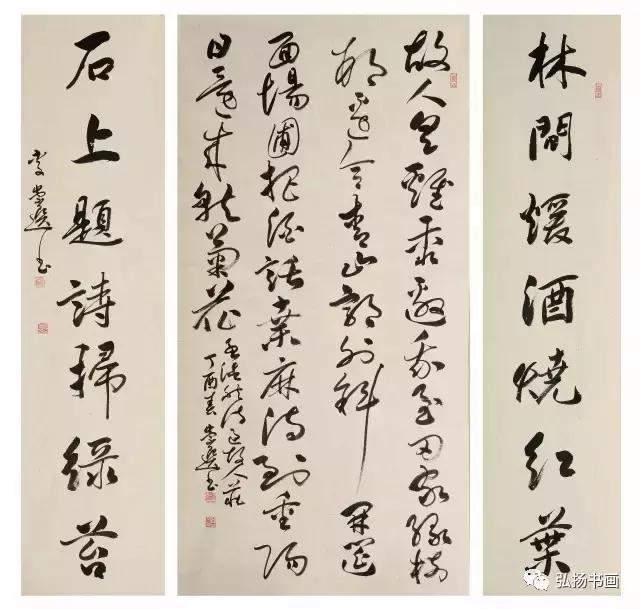 林間煖酒燒紅葉
故人具雞黍邀我至田家綠樹
村邊合青山郭外斜開筵
面場圃把酒話桑麻待到重陽
日還來就菊花
孟浩然詩過故人莊
丁酉春崇選書
石上題詩掃綠苔
李崇選書
弘扬书画